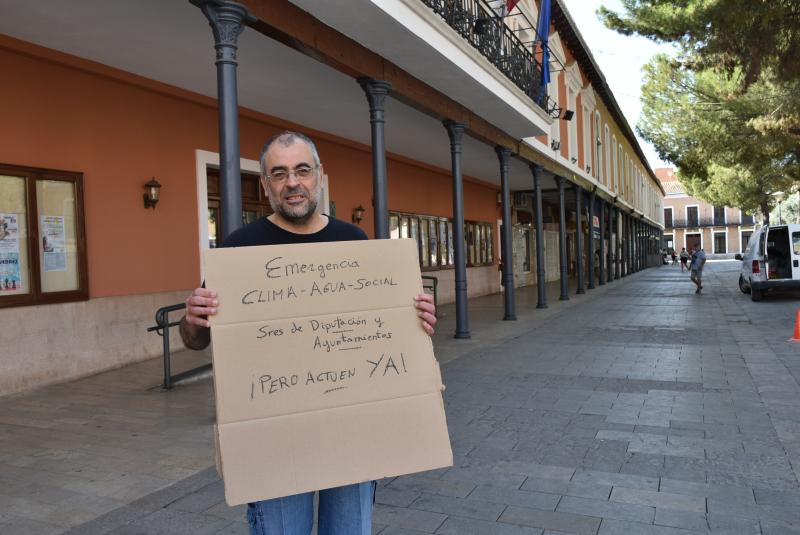 Emergencia
CLIMA - AGUA - SOCIAL
Sres de Diputación y
Ayuntamientos
¡PERO ACTUEN YA!